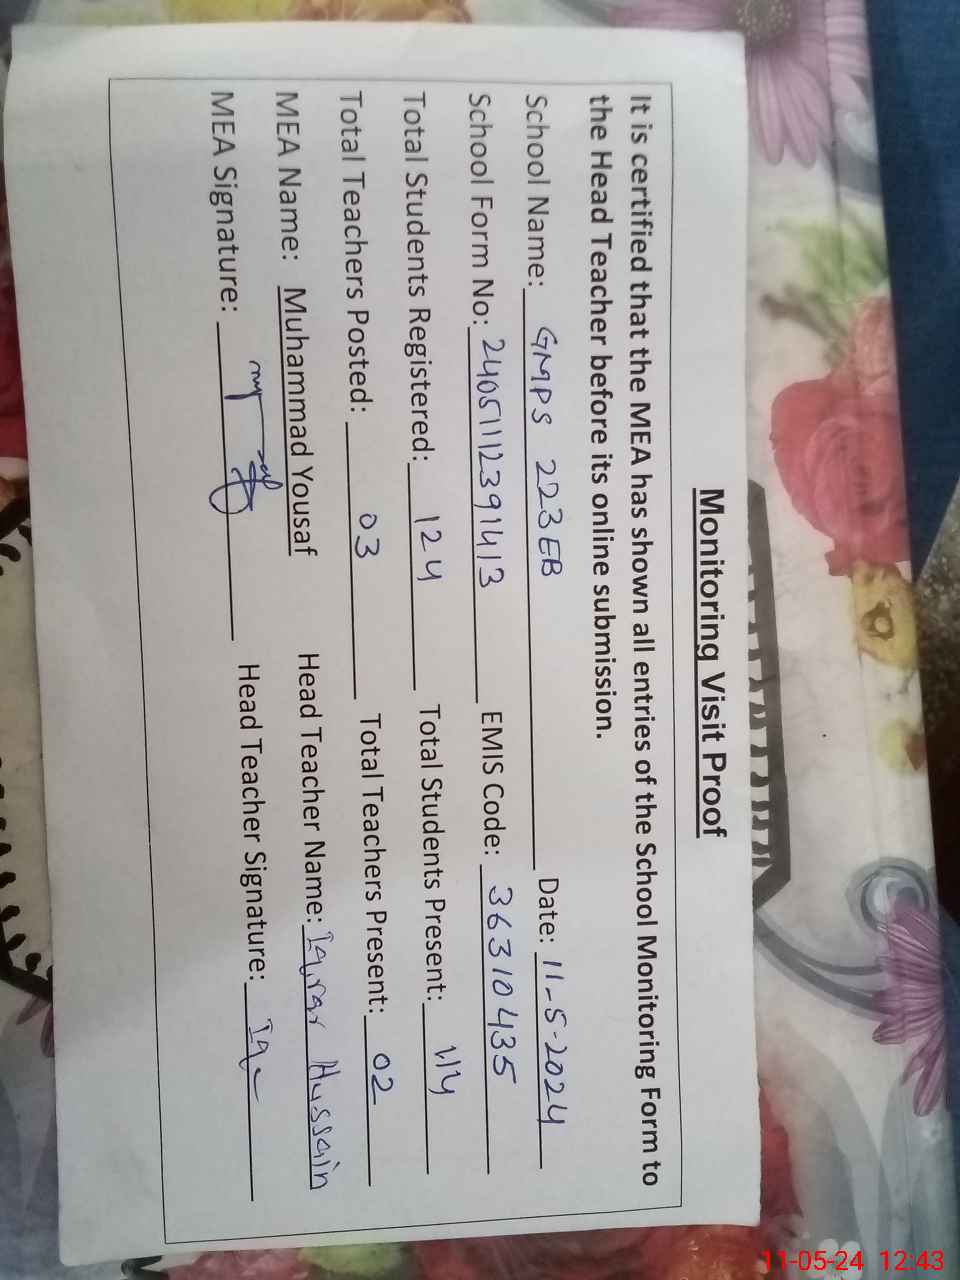 Monitoring Visit Proof
It is certified that the MEA has shown all entries of the School Monitoring Form to
the Head Teacher before its online submission.
School Name: GMPS 223 EB Date: 11-5-2024
School Form No: 240511123911413 EMIS Code: 36310435
Total Students Registered: 124 Total Students Present: 114
Total Teachers Posted: 03 Total Teachers Present: 02
MEA Name: Muhammad Yousaf Head Teacher Name: Iqrar Hussain
MEA Signature: Head Teacher Signature:
11-05-24 12:43